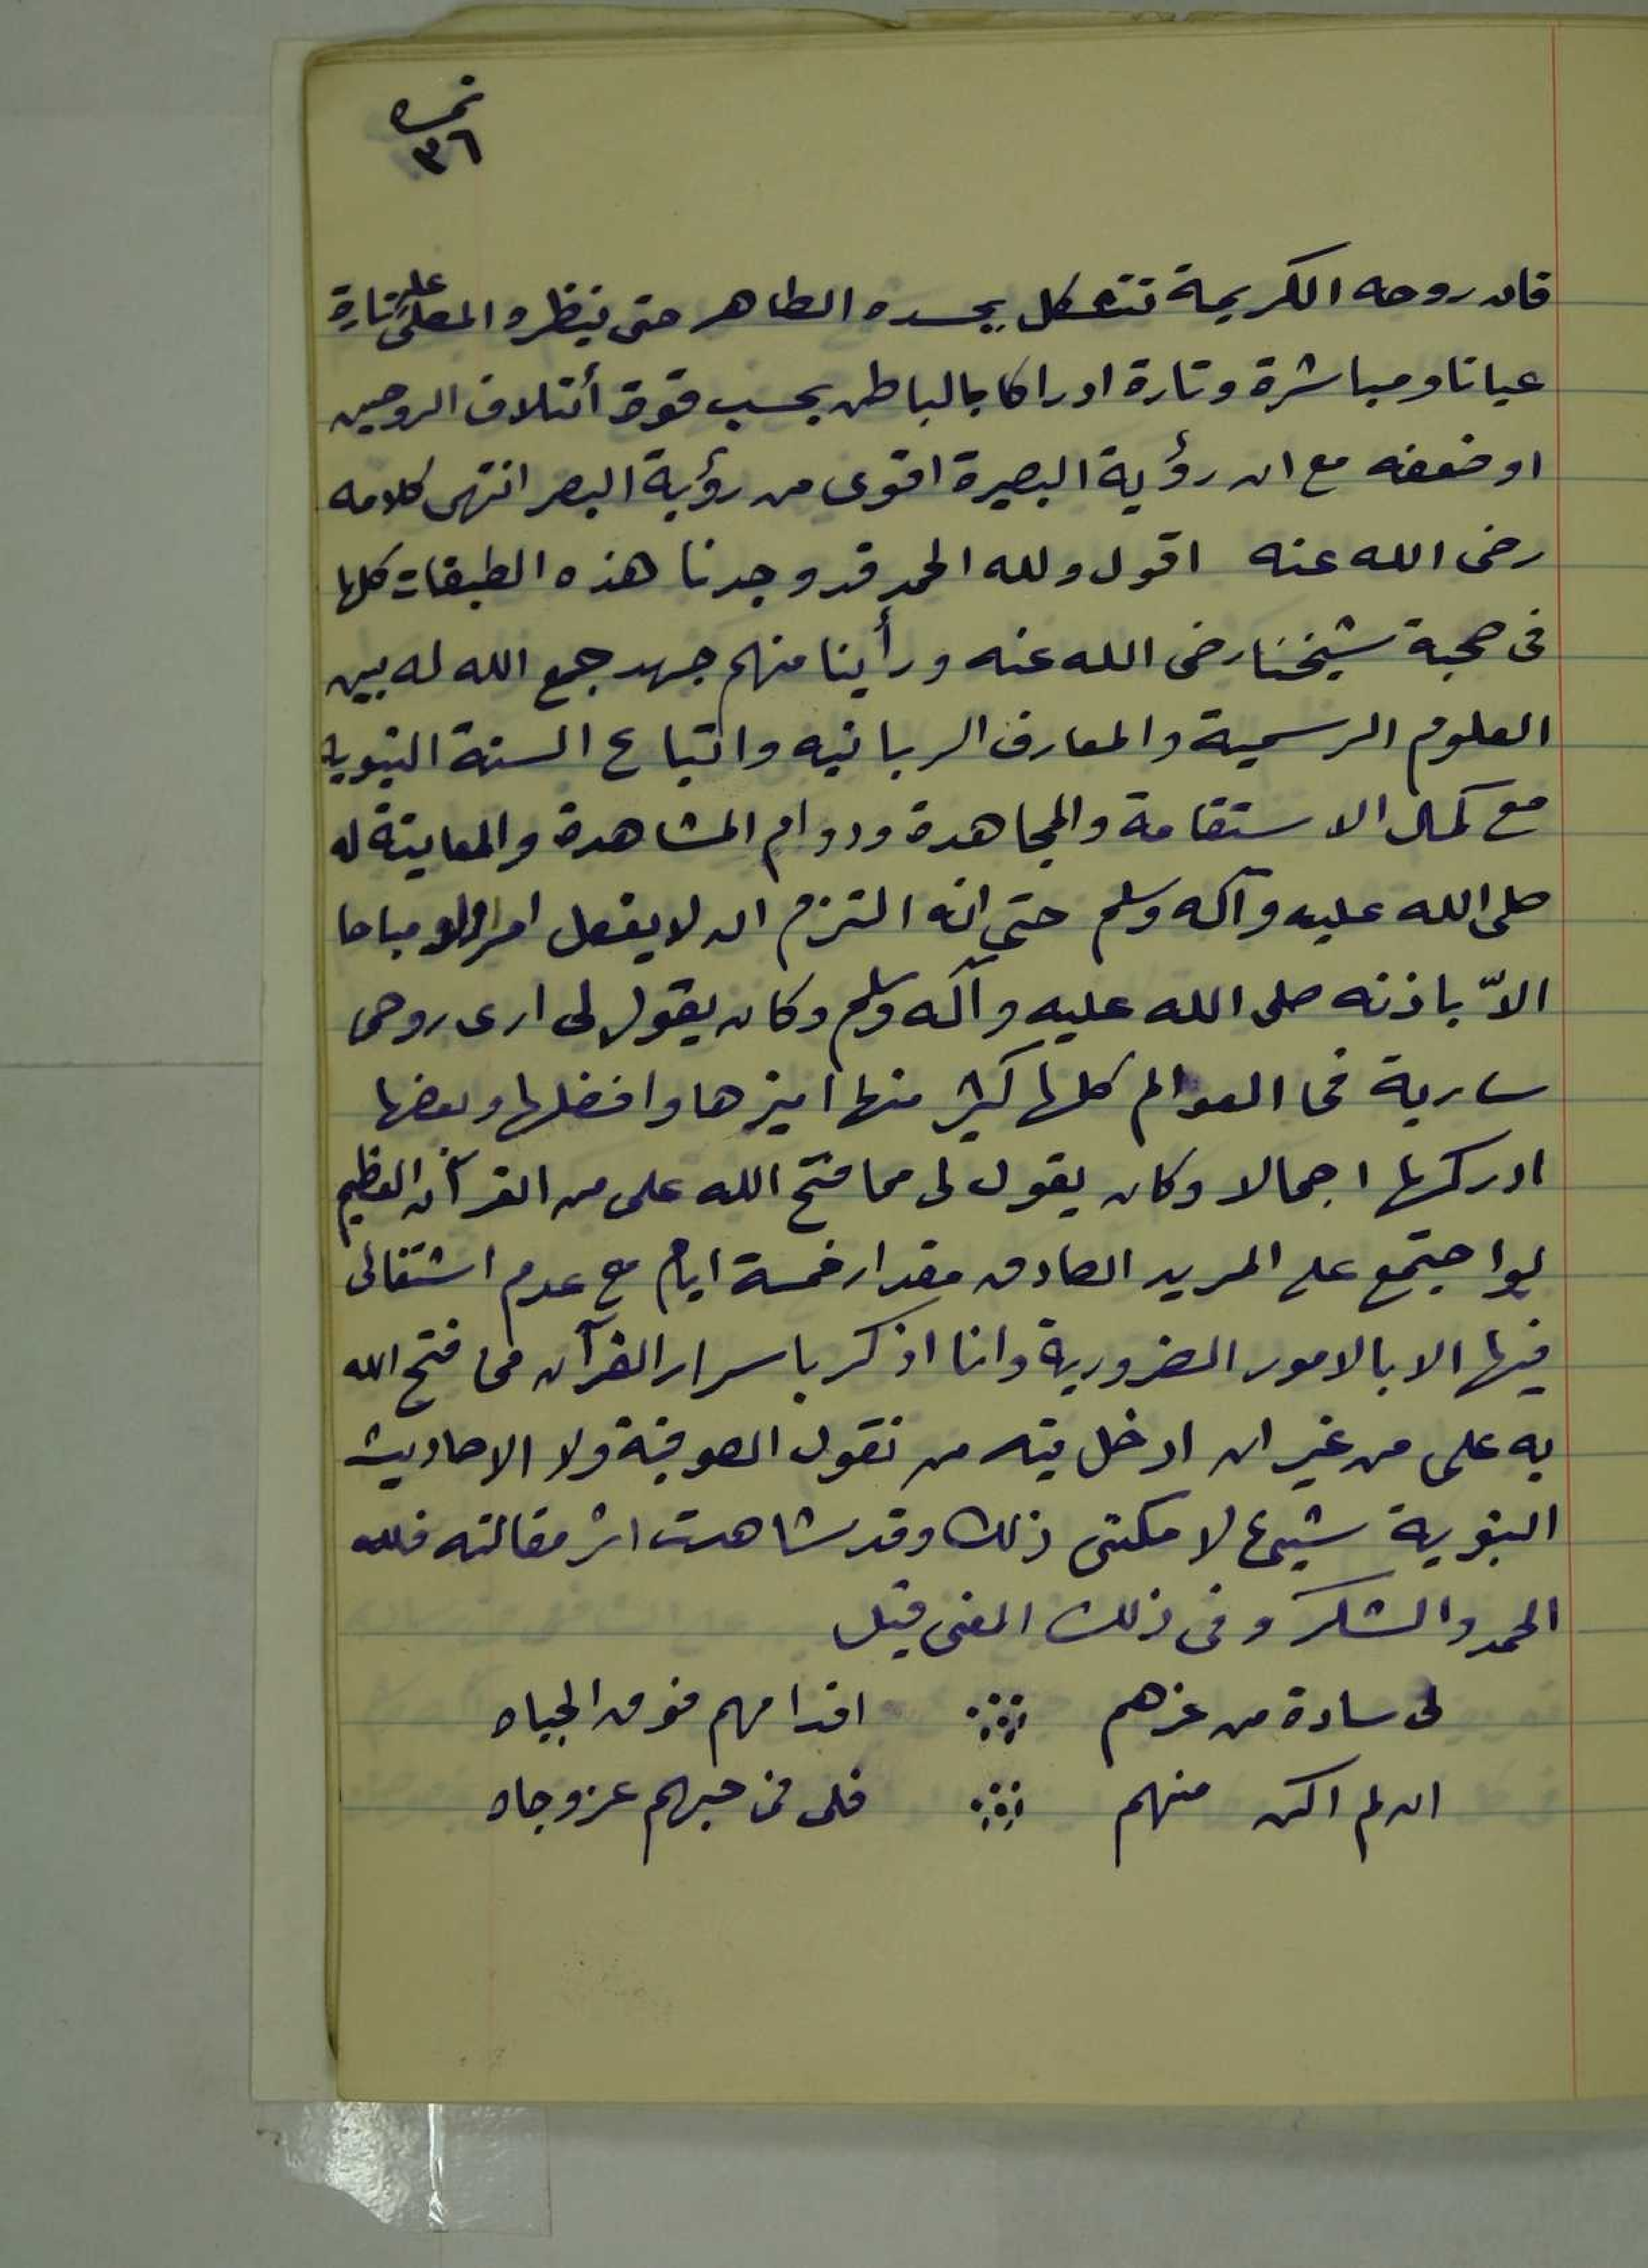 نمره
٣٦
فان روحه الكريمة تتشكل بجسده الطاهر حتى ينظره المصلى عليه تارة
عيانا ومباشرة وتارة ادراكا بالباطن بحسب قوة أئتلاف الروحين
او ضعفه مع ان رؤية البصيرة اقوى من رؤية البصر انتهى كلامه
رضى الله عنه اقول ولله الحمد قد وجدنا هذه الطبقات كلها
فى صحبة شيخنا رضى الله عنه ورأينا منهم جهد جمع الله له بين
العلوم الرسمية والمعارف الربانيه واتباع السنة النبويه
مع كمال الاستقامة والمجاهدة ودوام المشاهدة والمعاينة له
صلى الله عليه وآله وسلم حتى انه التزم ان لا يفعل امرا ولو مباحا
الاّ باذنه صلى الله عليه وآله وسلم وكان يقول لى ارى روحى
سارية فى العوالم كلها كثير منها اميزها وافضلها وبعضها
ادركها اجمالا وكان يقول لى مما فتح الله على من القرآن العظيم
لو اجتمع على المريد الصادق مقدار خمسة ايام مع عدم اشتغالى
فيها الا بالامور الضرورية وانا اذكر باسرار القرآن مما فتح الله
به على من غير ان ادخل فيه من نقول الصوفية ولا الاحاديث
النبوية شيئ لامكننى ذلك وقد شاهدت اثر مقالته فلله
الحمد والشكر وفى ذلك المعنى قيل
لى سادة من عزهم اقدامهم فوق الجباه
ان لم اكن منهم فلى فى حبهم عز وجاه